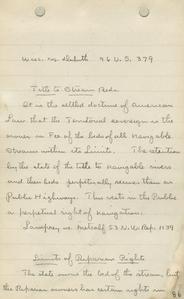 Wisc. vs Duluth 96 U.S. 379
Title to Stream Beds
It is the settled doctrine of American
Law that the Territorial sovereign is the
owner in Fee of the beds of all Navigable
Streams within its Limits. The retention
by the state of the title to Navigable rivers
and their beds perpetually secures them as
Public Highways. This rests in the Public
a perpetual right of navigation.
Lamprey vs Metcalf 53 N.W. Rep. 1139
Limits of Riparian Rights
The state owns the bed of the stream, but
the Riparian owners has certain rights in
86